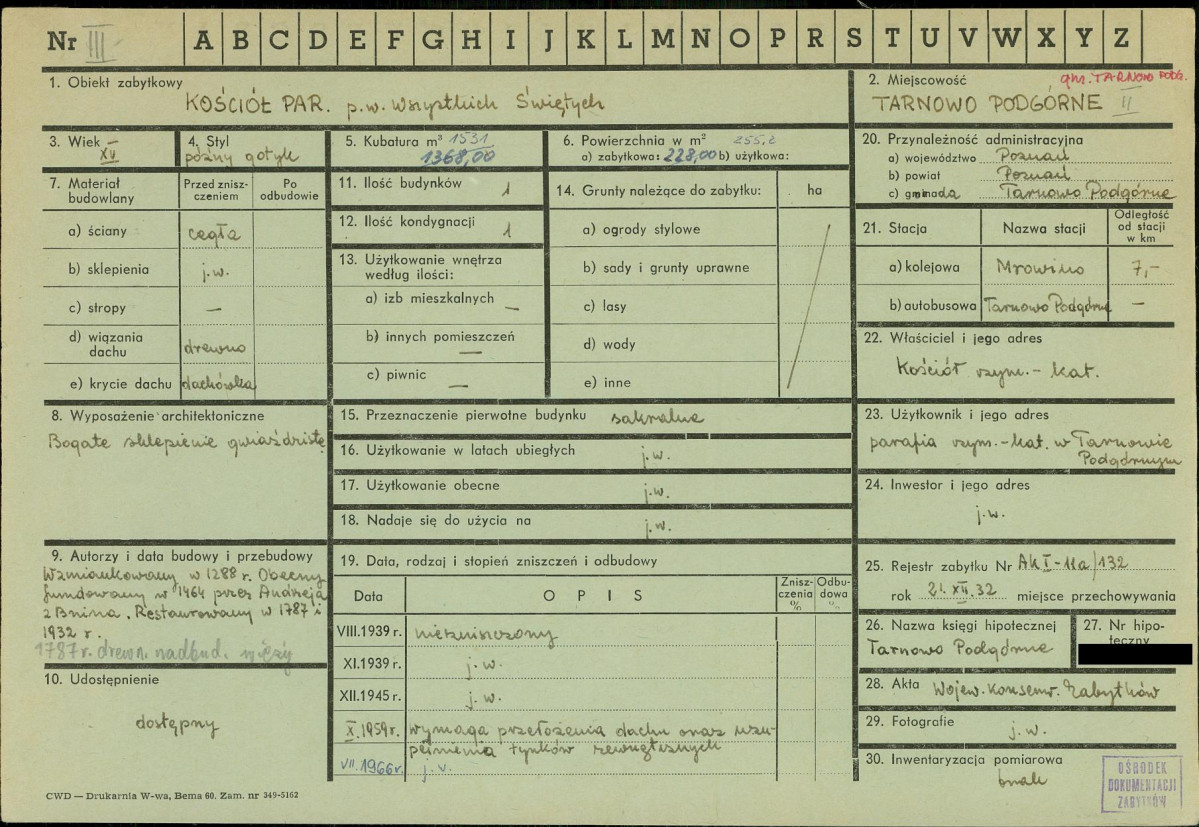 Nr III A B C D E F G H I J K L M N O P R S T U V W X Y Z
1. Obiekt zabytkowy
KOŚCIÓŁ PAR. p.w. Wszystkich Świętych
2. Miejscowość gm. TARNOWO PODG.
TARNOWO PODGÓRNE II
3. Wiek
XV
4. Styl
późny gotyk
5. Kubatura m³ 1531
1368,00
6. Powierzchnia w m² 255,2
a) zabytkowa: 228,00 b) użytkowa:
7. Materiał budowlany
Przed znisz-
czeniem
Po
odbudowie
a) ściany cegła
b) sklepienia j.w.
c) stropy —
d) wiązania
dachu drewno
e) krycie dachu dachówka
8. Wyposażenie architektoniczne
Bogate sklepienie gwiaździste
9. Autorzy i data budowy i przebudowy
Wzmiankowany w 1288 r. Obecny
fundowany w 1464 przez Andrzeja
z Bnina. Restaurowany w 1787 i
1932 r.
1787 r. drewn. nadbud. wieży
10. Udostępnienie
dostępny
11. Ilość budynków 1
12. Ilość kondygnacji 1
13. Użytkowanie wnętrza
według ilości:
a) izb mieszkalnych
—
b) innych pomieszczeń
—
c) piwnic
—
14. Grunty należące do zabytku: ha
a) ogrody stylowe
b) sady i grunty uprawne
c) lasy
d) wody
e) inne
15. Przeznaczenie pierwotne budynku sakralne
16. Użytkowanie w latach ubiegłych j.w.
17. Użytkowanie obecne j.w.
18. Nadaje się do użycia na j.w.
19. Data, rodzaj i stopień zniszczeń i odbudowy
Data OPIS Znisz-
czenia
% Odbu-
dowa
%
VIII.1939 r. niezniszczony
XI.1939 r. j.w.
XII.1945 r. j.w.
X.1959 r. wymaga przełożenia dachu oraz uzu-
pełnienia tynków zewnętrznych
VII.1966 r. j.w.
20. Przynależność administracyjna
a) województwo Poznań
b) powiat Poznań
c) gromada Tarnowo Podgórne
21. Stacja Nazwa stacji Odległość
od stacji
w km
a) kolejowa Mrowino 7,-
b) autobusowa Tarnowo Podgórne —
22. Właściciel i jego adres
Kościół rzym.-kat.
23. Użytkownik i jego adres
parafia rzym.-kat. w Tarnowie
Podgórnym
24. Inwestor i jego adres
j.w.
25. Rejestr zabytku Nr Ak I-11a/132
rok 21.XII.32 miejsce przechowywania
26. Nazwa księgi hipotecznej
Tarnowo Podgórne
27. Nr hipo-
teczny
28. Akta Wojew. Konserw. Zabytków
29. Fotografie j.w.
30. Inwentaryzacja pomiarowa
brak
OŚRODEK
DOKUMENTACJI
ZABYTKÓW
CWD — Drukarnia W-wa, Bema 60. Zam. nr 349-5162